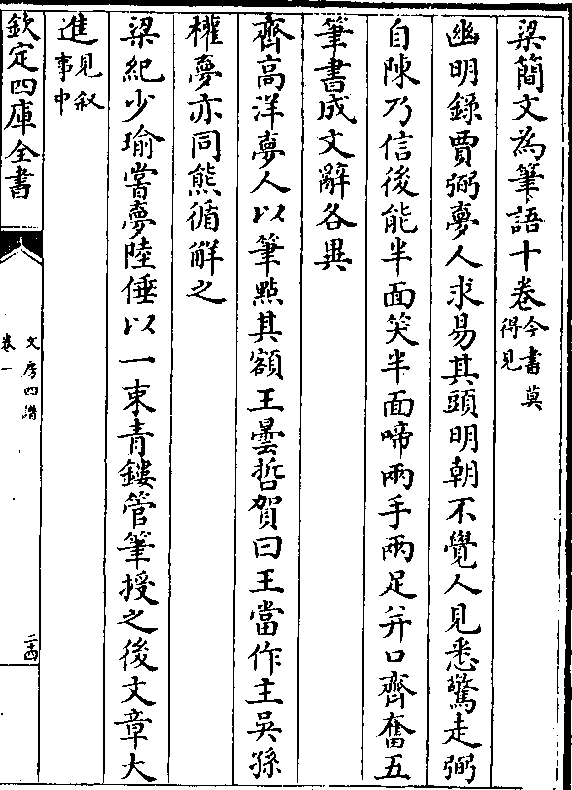 梁簡文為筆語十卷今書莫得見
幽明錄賈弼夢人求易其頭明朝不覺人見悉驚走弼
自陳乃信後能半面笑半面啼兩手兩足并口齊奮五
筆書成文辭各異
齊高洋夢人以筆點其額王曇哲賀曰王當作主吳孫
權夢亦同熊循解之
梁紀少瑜嘗夢陸倕以一束青鏤管筆授之後文章大
進見叙事中
欽定四庫全書
文房四譜
卷一
二四